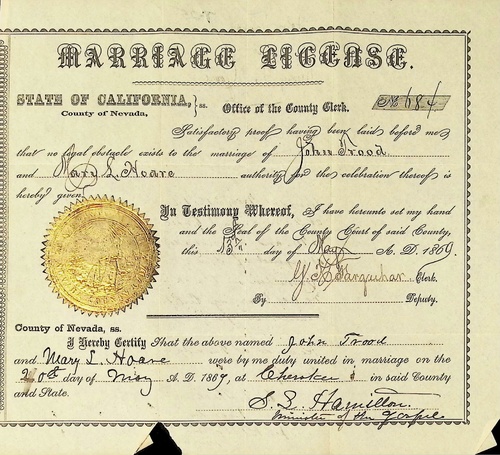 MARRIAGE LICENSE.
STATE OF CALIFORNIA, } ss.
County of Nevada,
Office of the County Clerk.
No 684
Satisfactory proof having been laid before me
that no legal obstacle exists to the marriage of John Trood
and Mary L. Hoare authority for the celebration thereof is
hereby given.
In Testimony Whereof, I have hereunto set my hand
and the Seal of the County Court of said County,
this 15th day of May A. D. 1869.
Farquhar Clerk.
By Deputy.
County of Nevada, ss.
I Hereby Certify That the above named John Trood
and Mary L. Hoare were by me duly united in marriage on the
20th day of May A. D. 1869, at Cherokee in said County
and State.
S. S. Hamilton.
Minister of the Gospel